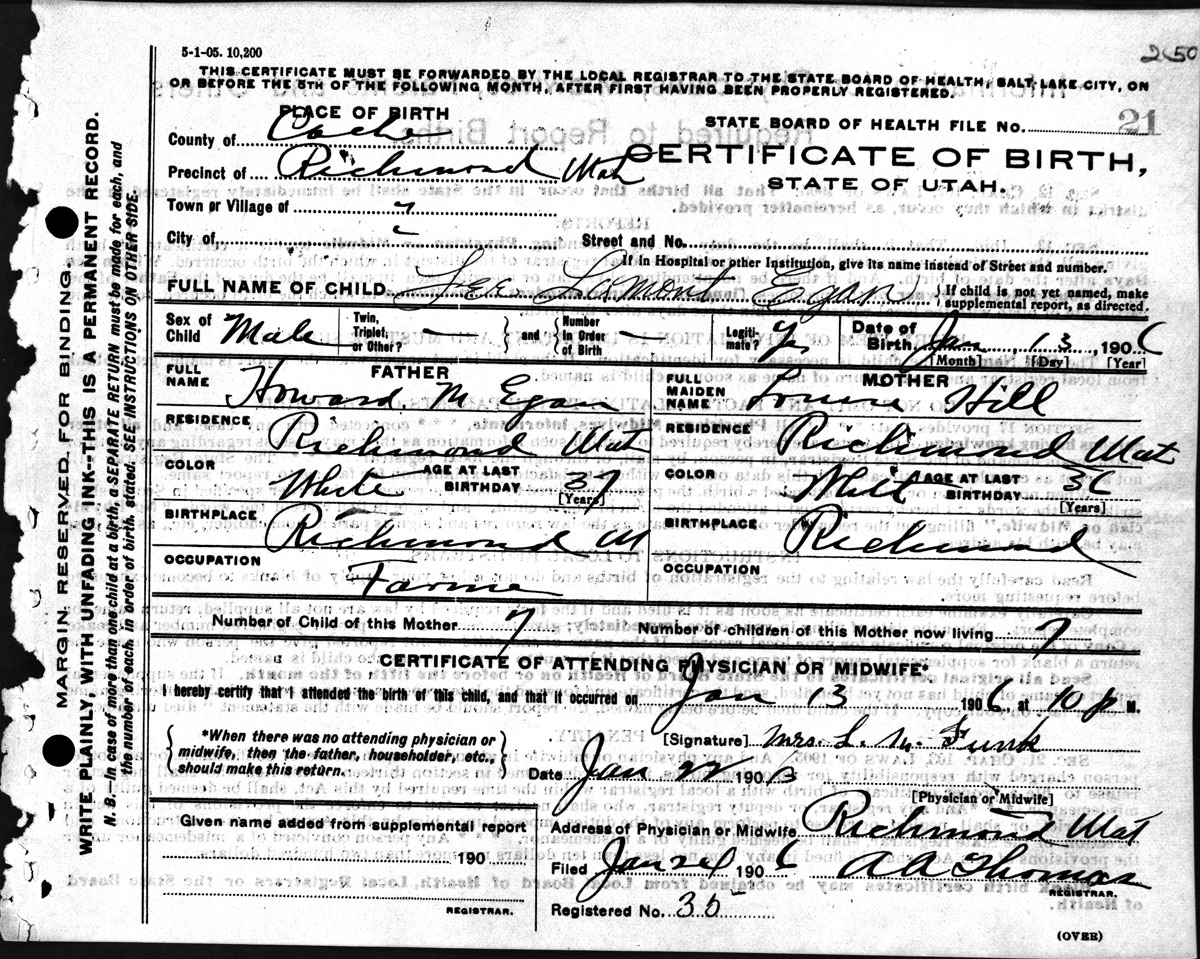 5-1-05. 10,200
2650
THIS CERTIFICATE MUST BE FORWARDED BY THE LOCAL REGISTRAR TO THE STATE BOARD OF HEALTH, SALT LAKE CITY, ON
OR BEFORE THE 5TH OF THE FOLLOWING MONTH, AFTER FIRST HAVING BEEN PROPERLY REGISTERED.
PLACE OF BIRTH
STATE BOARD OF HEALTH FILE No. 21
County of Cache
CERTIFICATE OF BIRTH,
Precinct of Richmond Utah
STATE OF UTAH.
Town or Village of
City of
Street and No.
If in Hospital or other Institution, give its name instead of Street and number.
FULL NAME OF CHILD Lee Lamont Egan { If child is not yet named, make
supplemental report, as directed.
Sex of Child Male Twin, Triplet, or Other? - } and { Number in Order of Birth - Legiti-mate? Date of Birth Jan, 13, 1906
[Month] [Day] [Year]
FATHER
FULL NAME Howard M Egan
RESIDENCE Richmond Utah
COLOR White AGE AT LAST BIRTHDAY 37
[Years]
BIRTHPLACE Richmond U
OCCUPATION Farmer
MOTHER
FULL MAIDEN NAME Louise Hill
RESIDENCE Richmond Utah
COLOR White AGE AT LAST BIRTHDAY 36
[Years]
BIRTHPLACE Richmond
OCCUPATION
Number of Child of this Mother 7 Number of children of this Mother now living 7
CERTIFICATE OF ATTENDING PHYSICIAN OR MIDWIFE*
I hereby certify that I attended the birth of this child, and that it occurred on Jan 13 1906, at 10 p M.
{ *When there was no attending physician or
midwife, then the father, householder, etc.,
should make this return. }
[Signature] Mrs. L. M. Funk
Date Jan 22 190
[Physician or Midwife]
Given name added from supplemental report
190
REGISTRAR.
Address of Physician or Midwife Richmond Utah
Filed Jan 24 1906 A A Thomas
REGISTRAR.
Registered No. 35
(OVER)
MARGIN RESERVED FOR BINDING.
WRITE PLAINLY, WITH UNFADING INK--THIS IS A PERMANENT RECORD.
N. B.—In case of more than one child at a birth, a SEPARATE RETURN must be made for each, and
the number of each, in order of birth, stated. SEE INSTRUCTIONS ON OTHER SIDE.